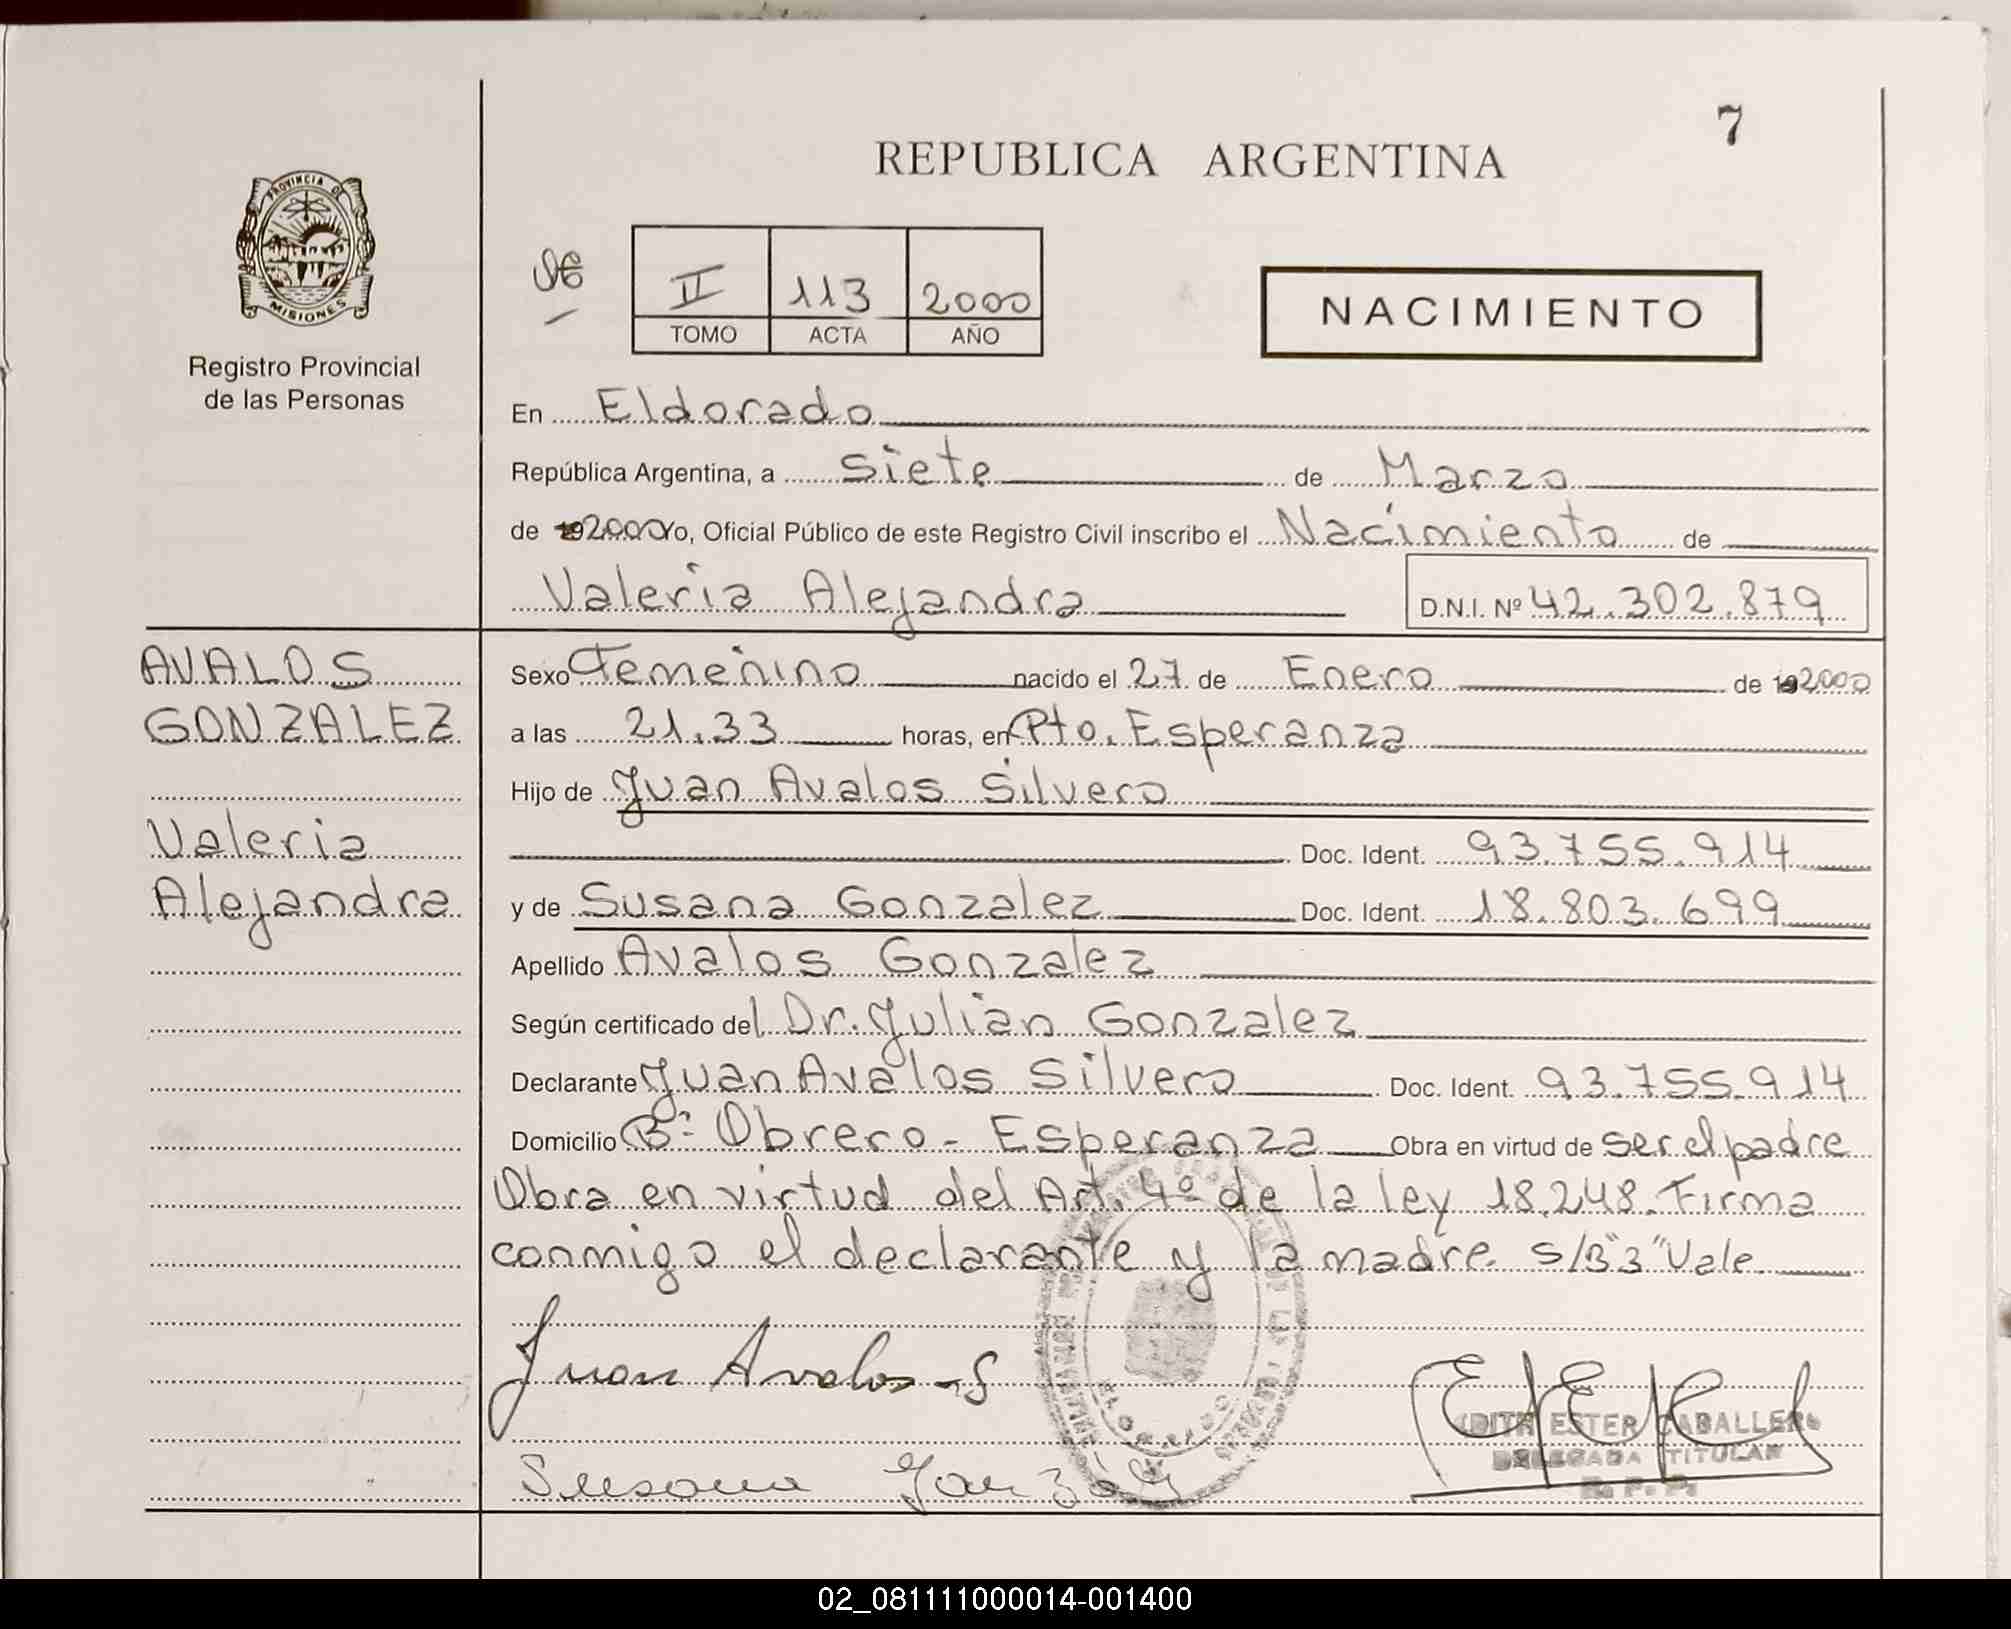 7
REPUBLICA ARGENTINA
PROVINCIA DE
MISIONES
Registro Provincial
de las Personas
II 113 2000
TOMO ACTA AÑO
NACIMIENTO
En Eldorado
República Argentina, a siete de Marzo
de 192000 Yo, Oficial Público de este Registro Civil inscribo el Nacimiento de
Valeria Alejandra D.N.I. Nº 42.302.879
AVALOS
GONZALEZ
Valeria
Alejandra
Sexo Femenino nacido el 27 de Enero de 192000
a las 21.33 horas, en Pto. Esperanza
Hijo de Juan Avalos Silvero
Doc. Ident. 93.755.914
y de Susana Gonzalez Doc. Ident. 18.803.699
Apellido Avalos Gonzalez
Según certificado del Dr. Julián Gonzalez
Declarante Juan Avalos Silvero Doc. Ident. 93.755.914
Domicilio Bº Obrero - Esperanza Obra en virtud de ser el padre
Obra en virtud del Art. 4º de la ley 18.248. Firma
conmigo el declarante y la madre. s/B"3" Vale
Juan Avalos S
Susana Gonzá
EDITH ESTER CABALLERO
DELEGADA TITULAR
R. P. P.
02_081111000014-001400